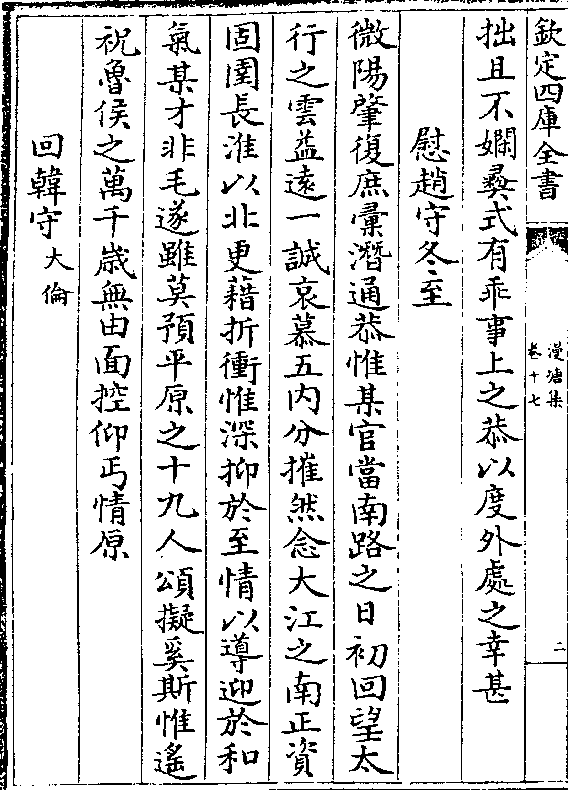 欽定四庫全書
漫塘集
卷十七
二
拙且不嫻彛式有乖事上之恭以度外處之幸甚
慰趙守冬至
微陽肇復庶彚潛通恭惟某官當南路之日初回望太
行之雲益遠一誠哀慕五内分摧然念大江之南正資
固圉長淮以北更藉折衝惟深抑於至情以導迎於和
氣某才非毛遂雖莫預平原之十九人頌擬奚斯惟遙
祝魯侯之萬千歳無由面控仰丐情原
回韓守大倫